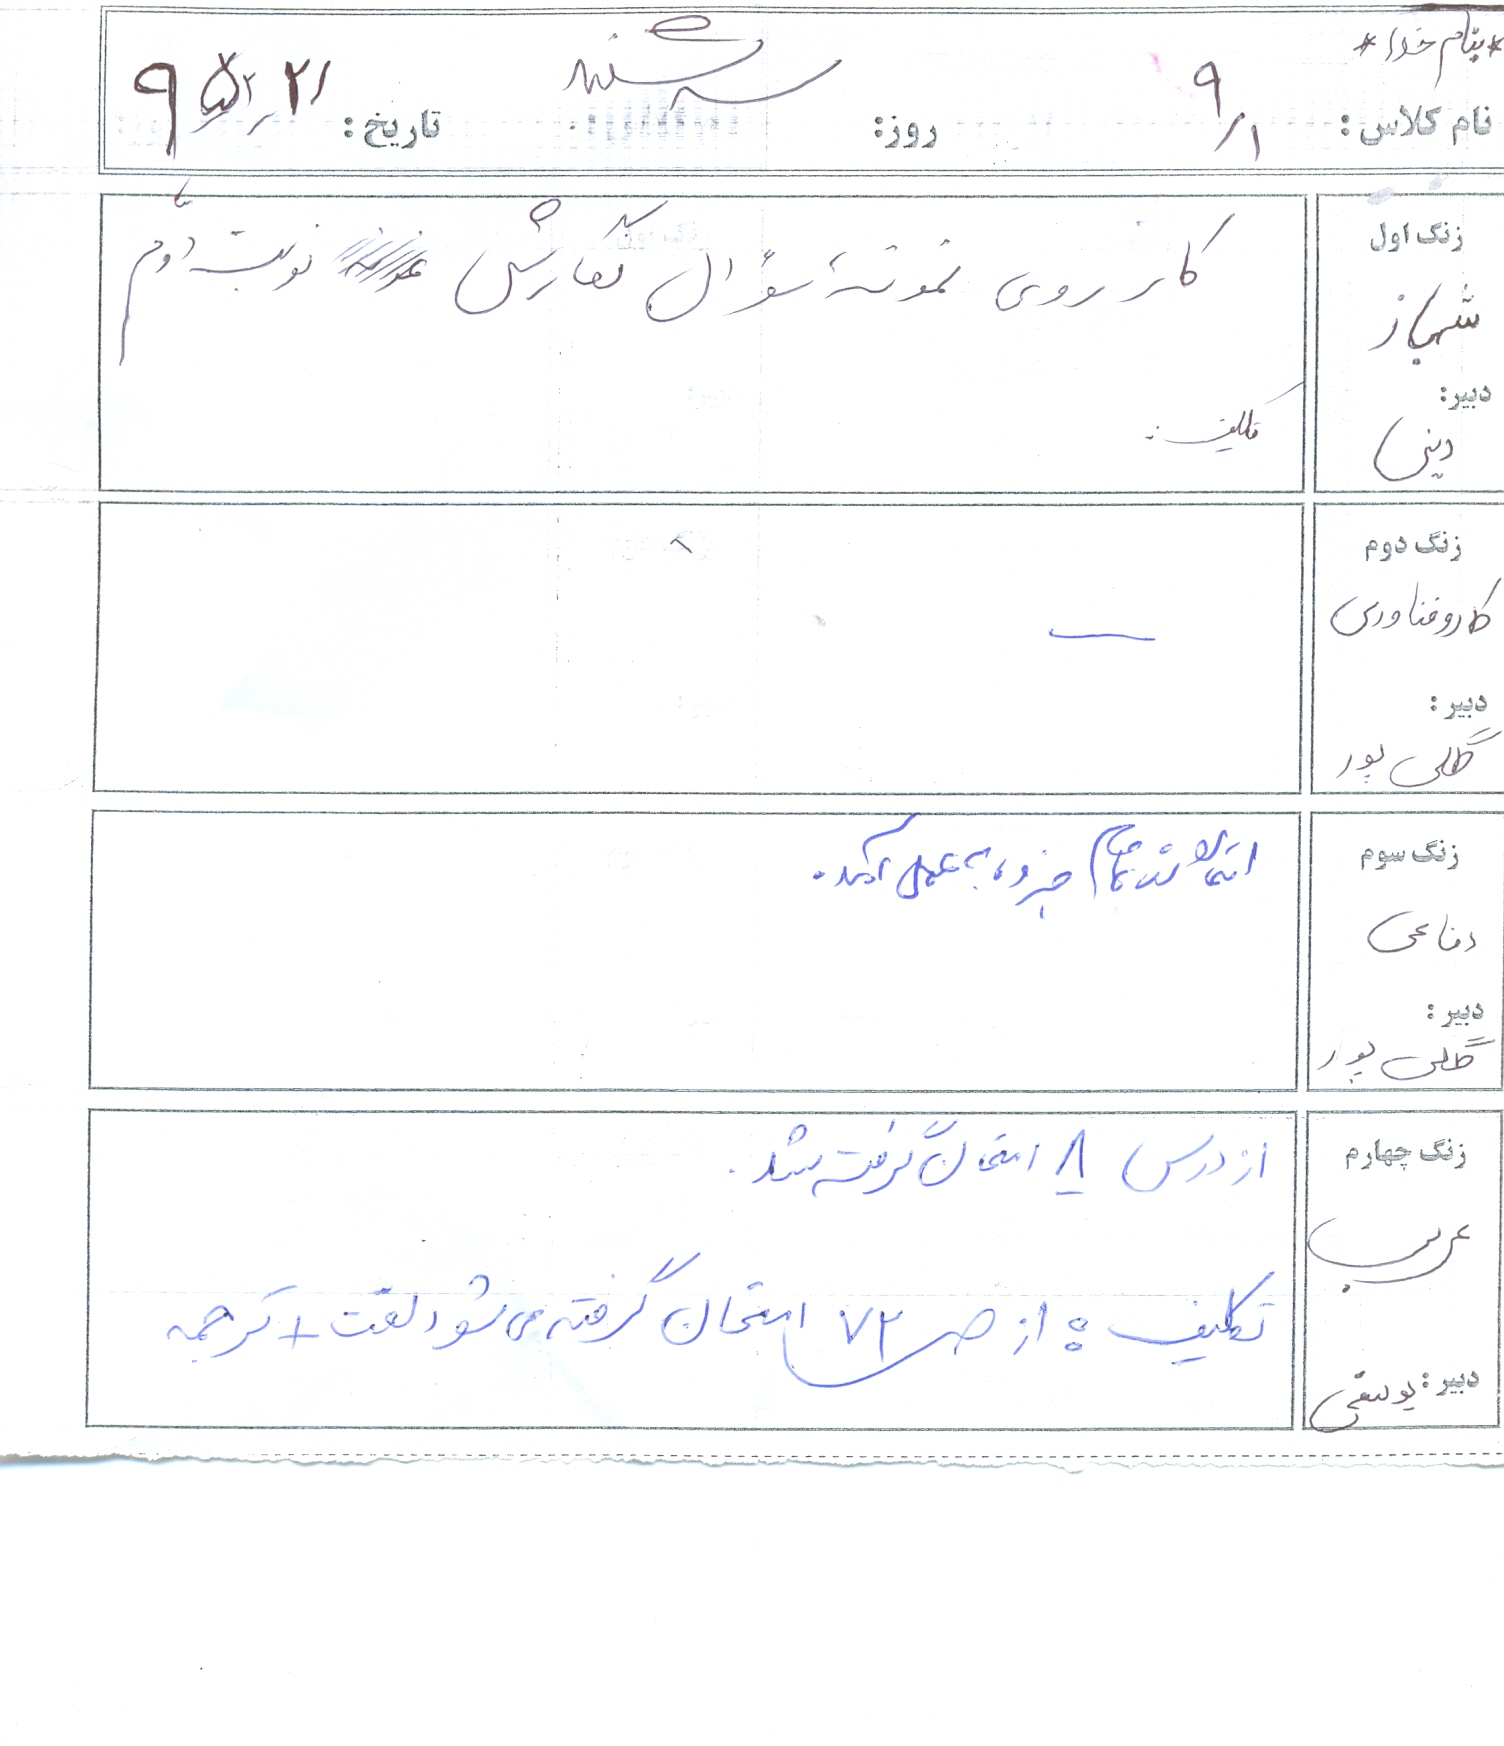 *بنام خدا*
نام کلاس: ۹/۱ روز: سه شنبه تاریخ: ۲۱
زنگ اول
کار روی نمونهٔ سؤال نگارش نوبت دوم
تکلیف:
دبیر:
دینی
زنگ دوم
کاروفناوری
دبیر:
گلی پور
زنگ سوم
جزوه به عمل آمد.
دفاعی
دبیر:
گلی پور
زنگ چهارم
از درس ۸ امتحان گرفته شد.
عربی
تکلیف: از ص ۷۲ امتحان گرفته می شود لغت + ترجمه
دبیر: یوسفی